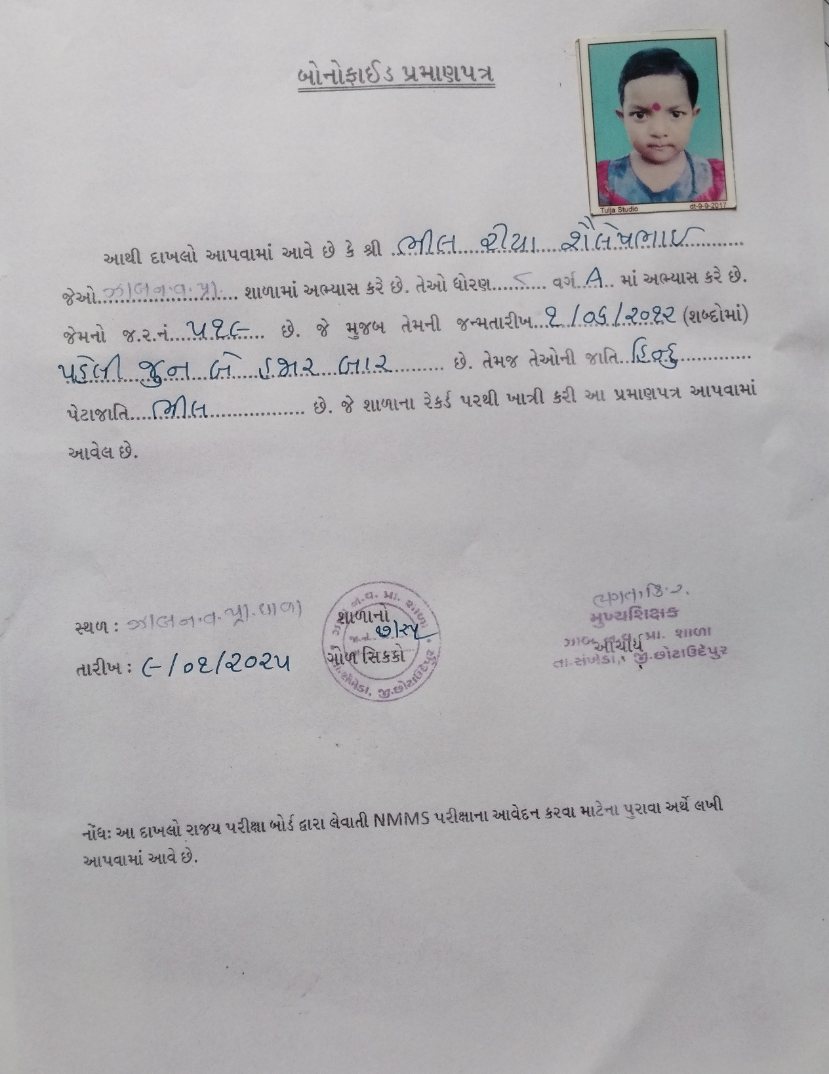 બોનોફાઈડ પ્રમાણપત્ર
Tulja Studio dt-9-9-2017
આથી દાખલો આપવામાં આવે છે કે શ્રી ભીલ રીયા શૈલેષભાઇ
જેઓ ઝાલન.વ.પ્રા. શાળામાં અભ્યાસ કરે છે. તેઓ ધોરણ ૮ વર્ગ A માં અભ્યાસ કરે છે.
જેમનો જ.ર.નં ૫૧૯ છે. જે મુજબ તેમની જન્મતારીખ ૧/૦૬/૨૦૧૨ (શબ્દોમાં)
પહેલી જુન બે હજાર બાર છે. તેમજ તેઓની જાતિ હિન્દુ
પેટાજાતિ ભીલ છે. જે શાળાના રેકર્ડ પરથી ખાત્રી કરી આ પ્રમાણપત્ર આપવામાં
આવેલ છે.
સ્થળ : ઝાલન.વ.પ્રા.શાળા
તારીખ : ૯/૦૧/૨૦૨૫
શાળાનો
ગોળ સિક્કો
મુખ્યશિક્ષક
આચાર્ય
પ્રા. શાળા
તા.સંખેડા, જી.છોટાઉદેપુર
નોંધ: આ દાખલો રાજય પરીક્ષા બોર્ડ દ્વારા લેવાતી NMMS પરીક્ષાના આવેદન કરવા માટેના પુરાવા અર્થે લખી
આપવામાં આવે છે.